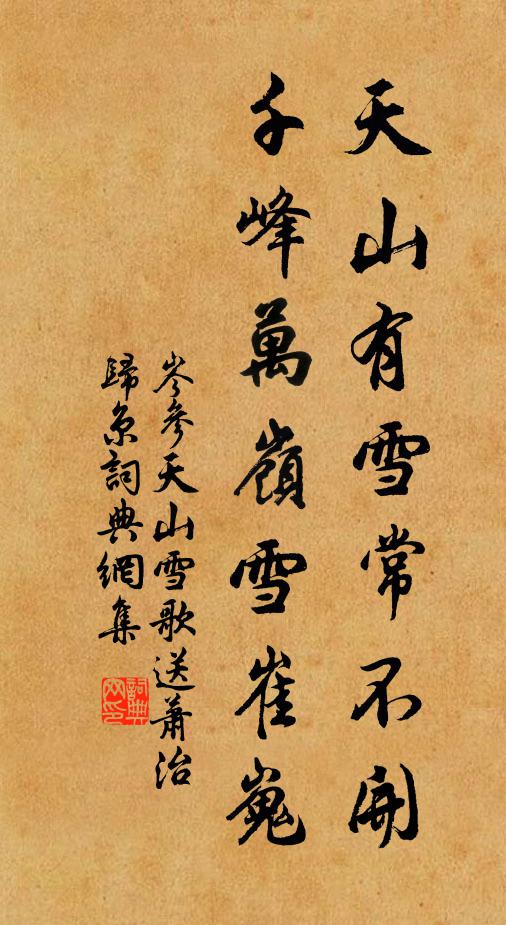 天山有雪常不開
千峰萬嶺雪崔嵬
岑參天山雪歌送蕭治
歸京詞典網集
詞典網印